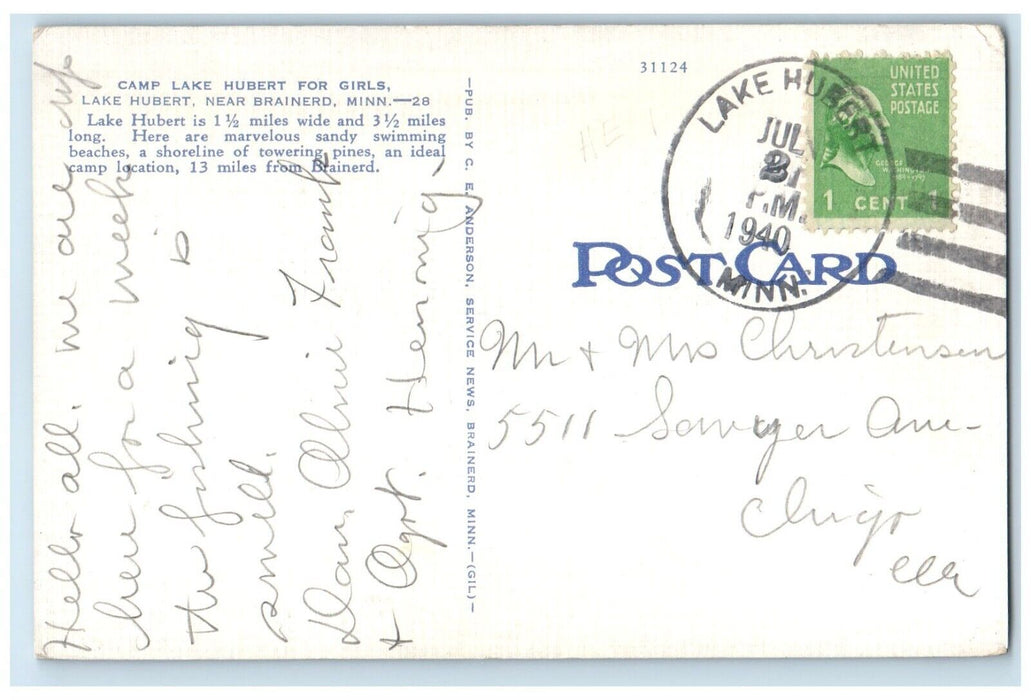 CAMP LAKE HUBERT FOR GIRLS,
LAKE HUBERT, NEAR BRAINERD, MINN.—28
Lake Hubert is 1½ miles wide and 3½ miles
long. Here are marvelous sandy swimming
beaches, a shoreline of towering pines, an ideal
camp location, 13 miles from Brainerd.
Hello all. we are up
here for a week
the fishing is
swell.
Frank
+ Agt. Henning.
—PUB. BY C. E. ANDERSON, SERVICE NEWS, BRAINERD, MINN.—(GIL)—
31124
LAKE HUBERT
JUL
P.M.
1940
MINN.
UNITED
STATES
POSTAGE
GEORGE
WASHINGTON
1 CENT 1
POST CARD
Mr + Mrs Christensen
5511 Sawyer Ave-
Chicgo
Ill